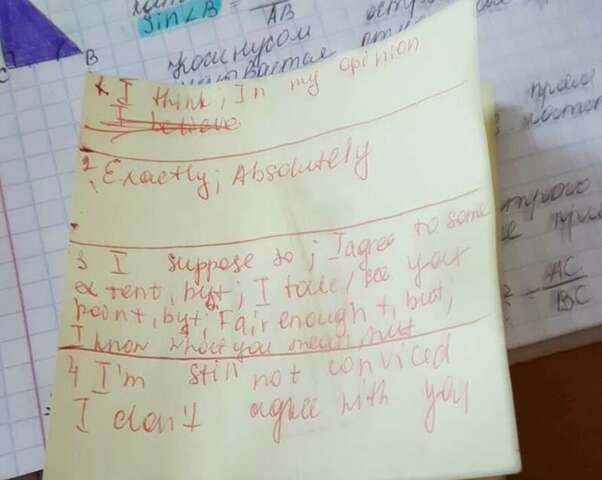 C
B
Sin∠B =
AB
Косинусом
остр
1. I think; In my opinion
I believe
2. Exactly; Absolutely
3 I suppose so; I agree to some
extent, but; I take/see your
point, but; Fair enough t, but;
I know what you mean, but
4 I'm still not conviced
I don't agree with you
AC
= BC